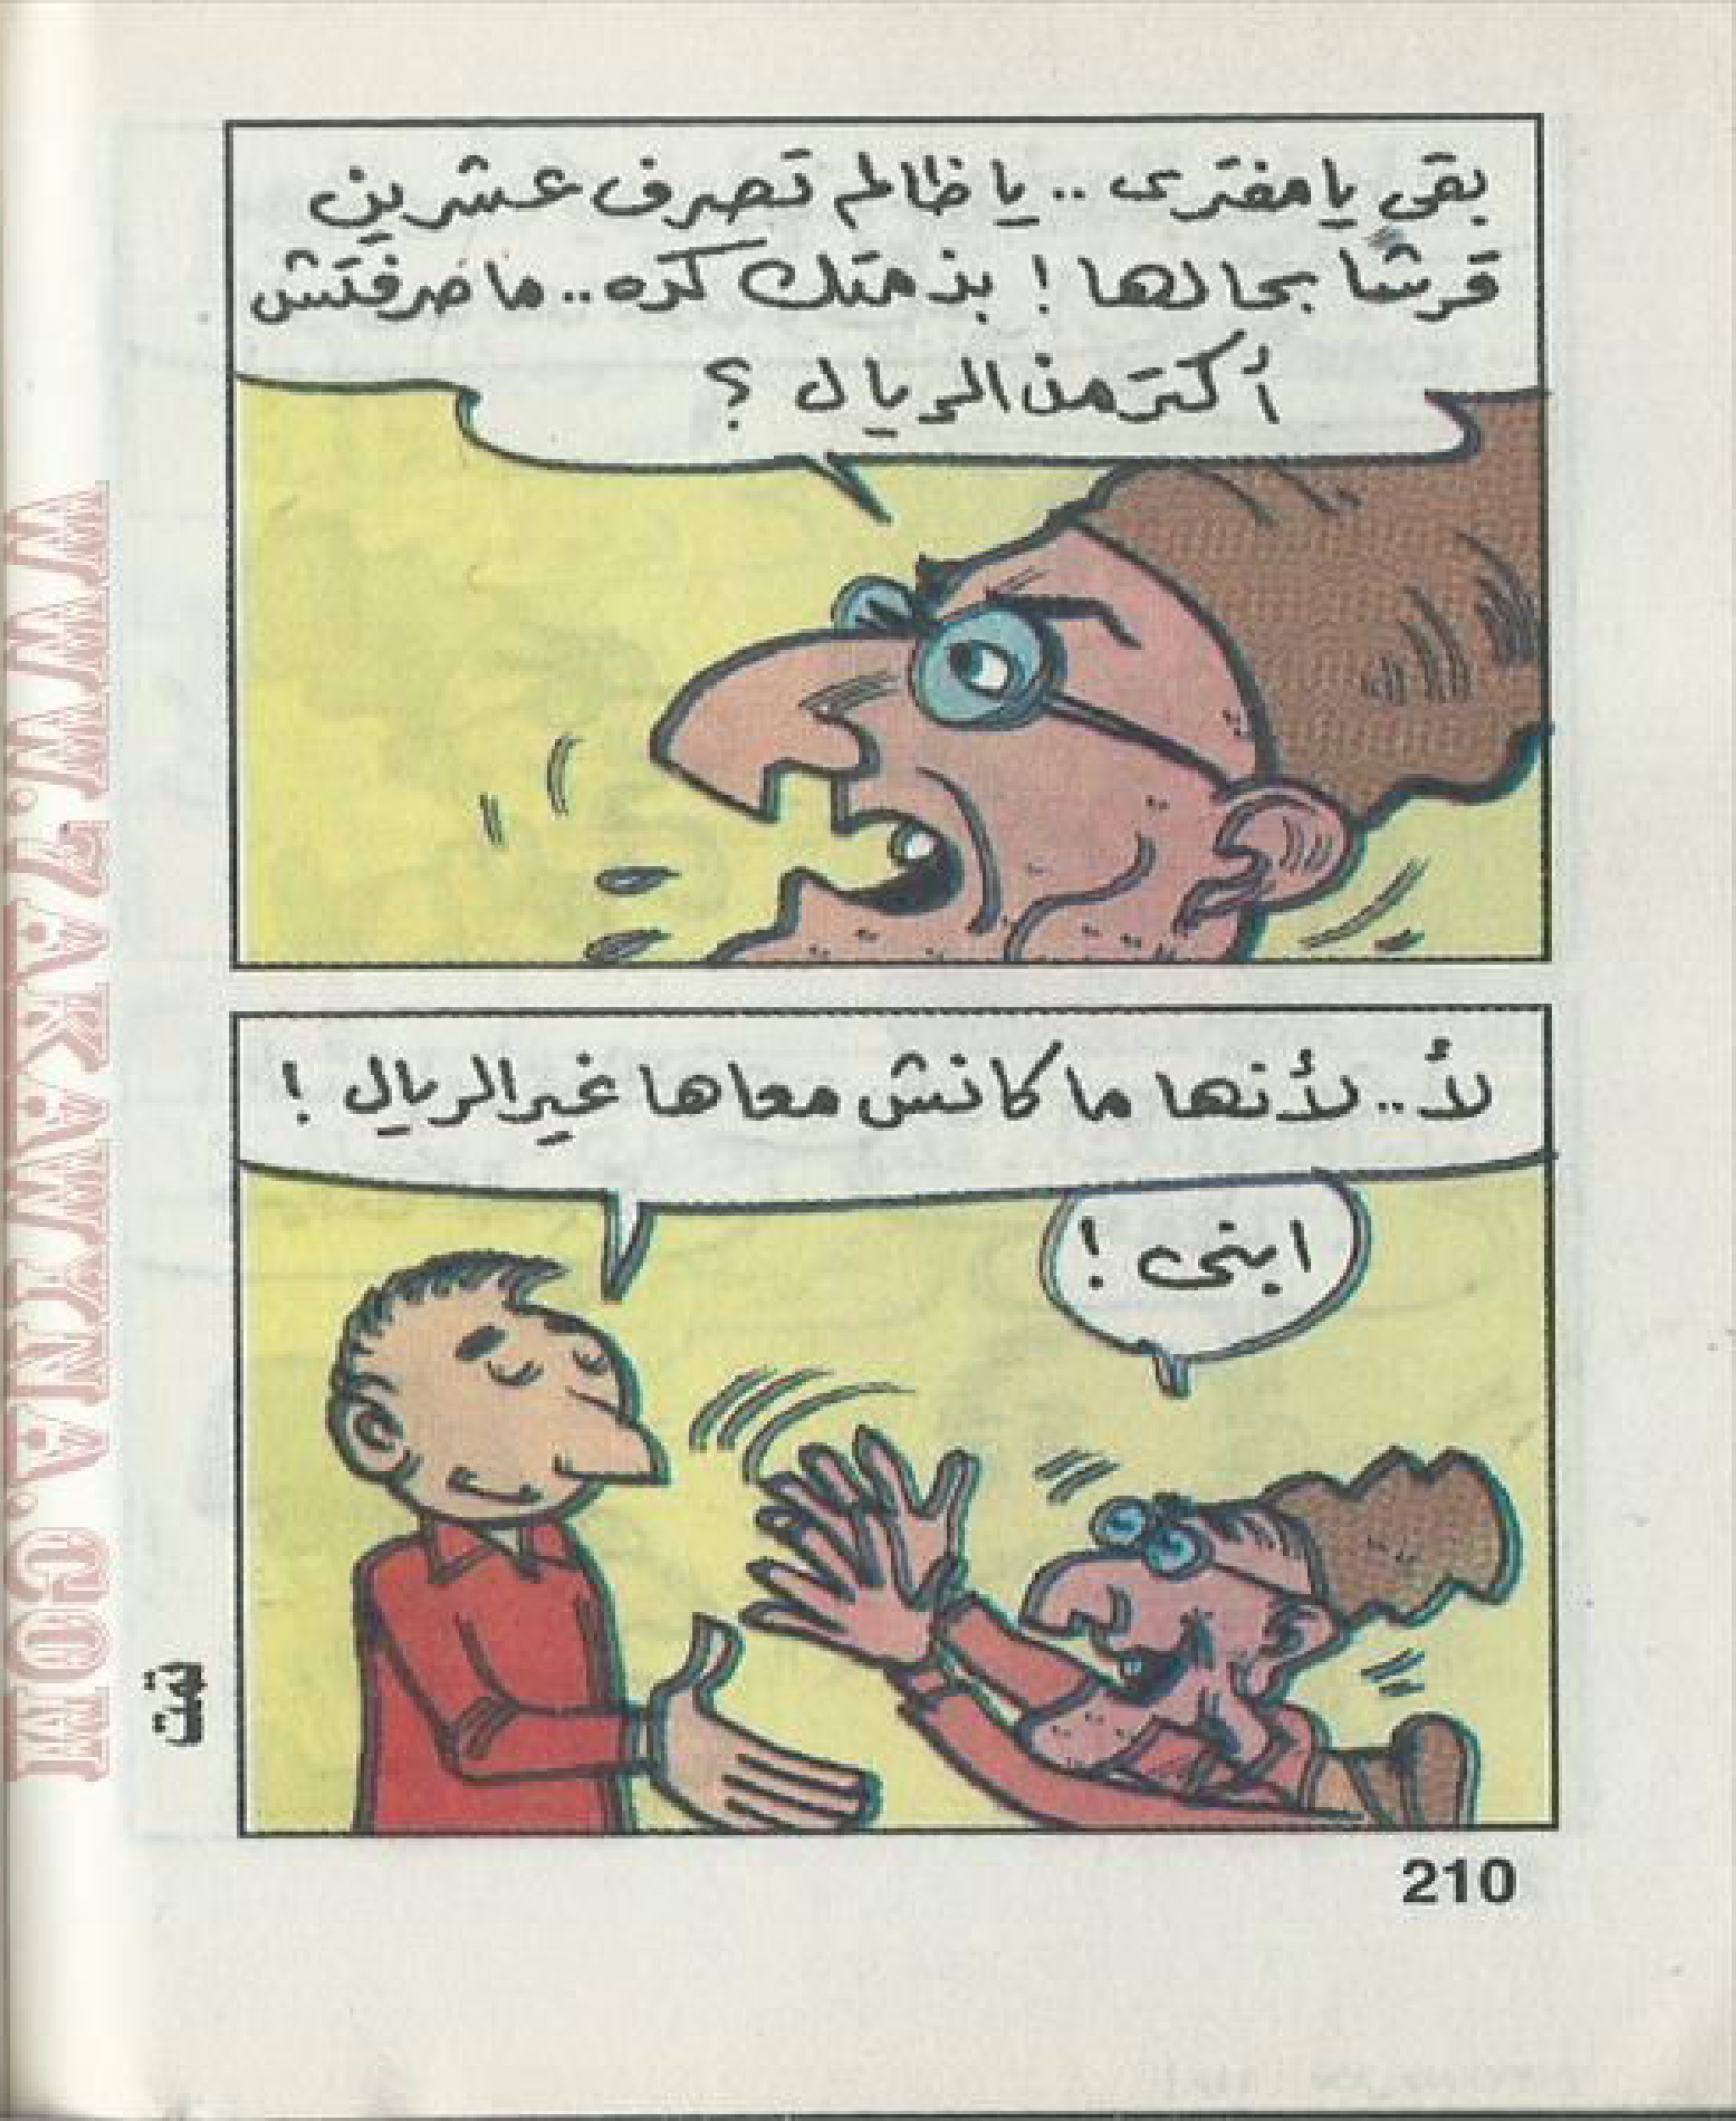 بقى يا مفترى .. يا ظالم تصرف عشرين
قرشا بحالها ! بذمتك كده .. ما صرفتش
أكتر من الريال ؟
لأ .. لأنها ما كانش معاها غير الريال !
ابنى !
تمت
210
WWW.ZAKAWTNA.COM